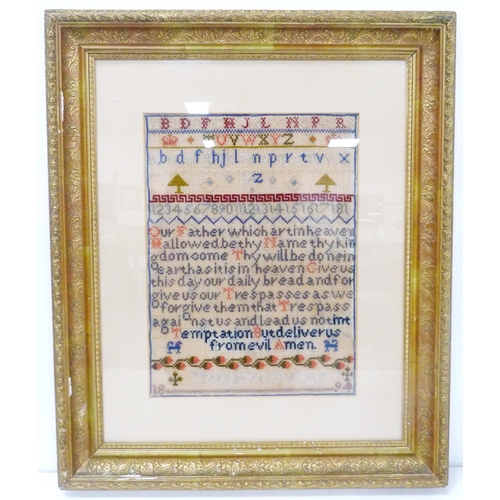 B D F H J L N P R
T U V W X Y Z
b d f h j l n p r t v x
z
1 2 3 4 5 6 7 8 9 10 11 12 13 14 15 16 17 18 1
Our Father which art in heaven
Hallowed be thy Name thy kin
gdom come Thy will be done in
earth as it is in heaven Give us
this day our daily bread and for
give us our Trespasses as we
forgive them that Trespass
against us and lead us not int
Temptation But deliver us
from evil Amen.
18 94